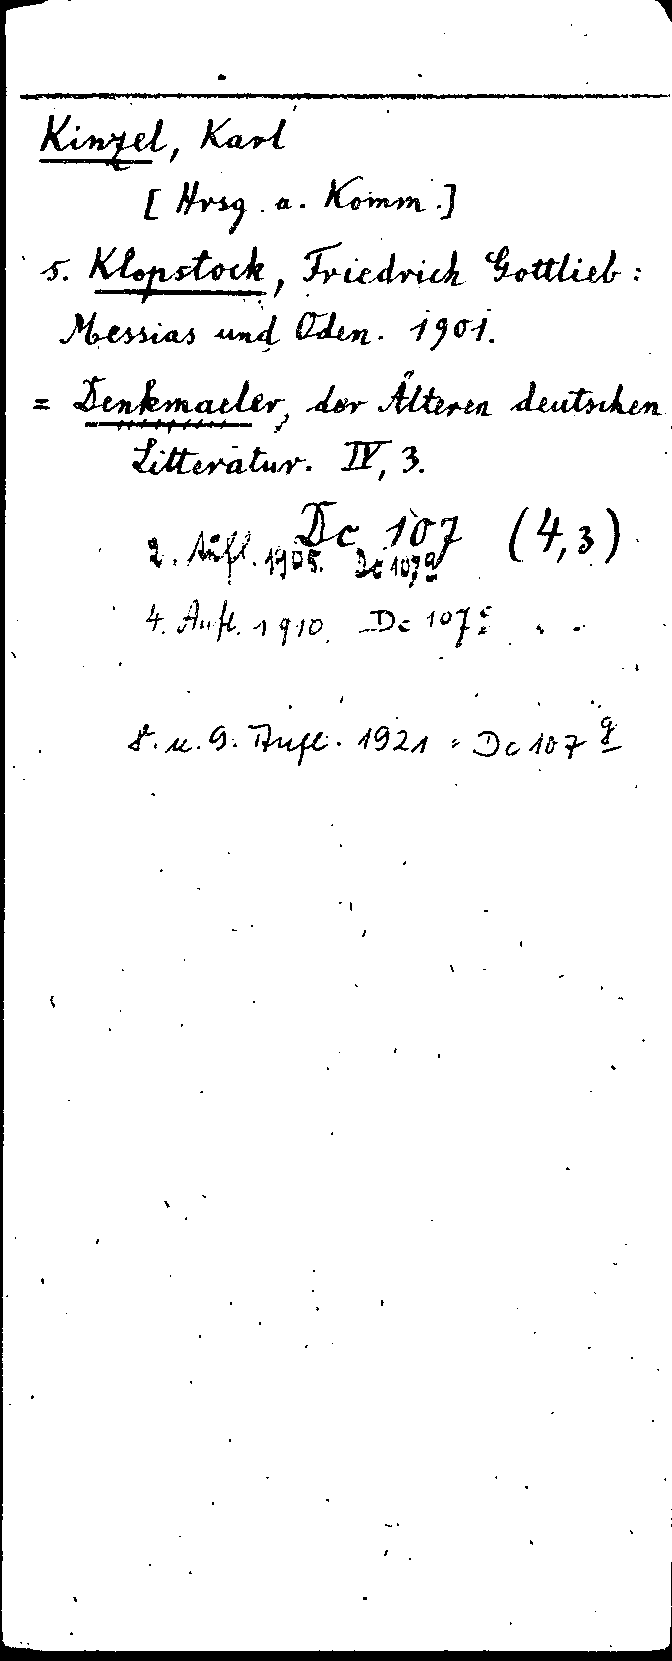 Kinzel, Karl
[Hrsg. a. Komm.]
s. Klopstock, Friedrich Gottlieb:
Messias und Oden. 1901.
= Denkmaeler, der Älteren deutschen
Litteratur. IV, 3.
Dc 107 (4,3)
2. Aufl. 1905. Dc 107a
4. Aufl. 1910. Dc 107c
8. u. 9. Aufl. 1921 = Dc 107 g